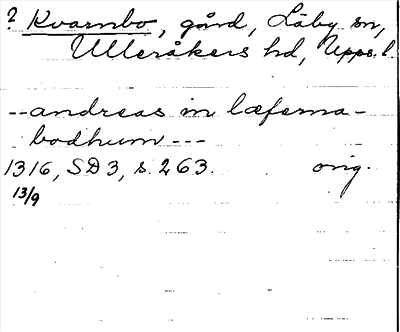 ? Kvarnbo, gård, Läby sn,
Ulleråkers hd, Upps. l.
-- andreas in læferna-
bodhum ---
1316, SD 3, s. 263. orig.
13/9